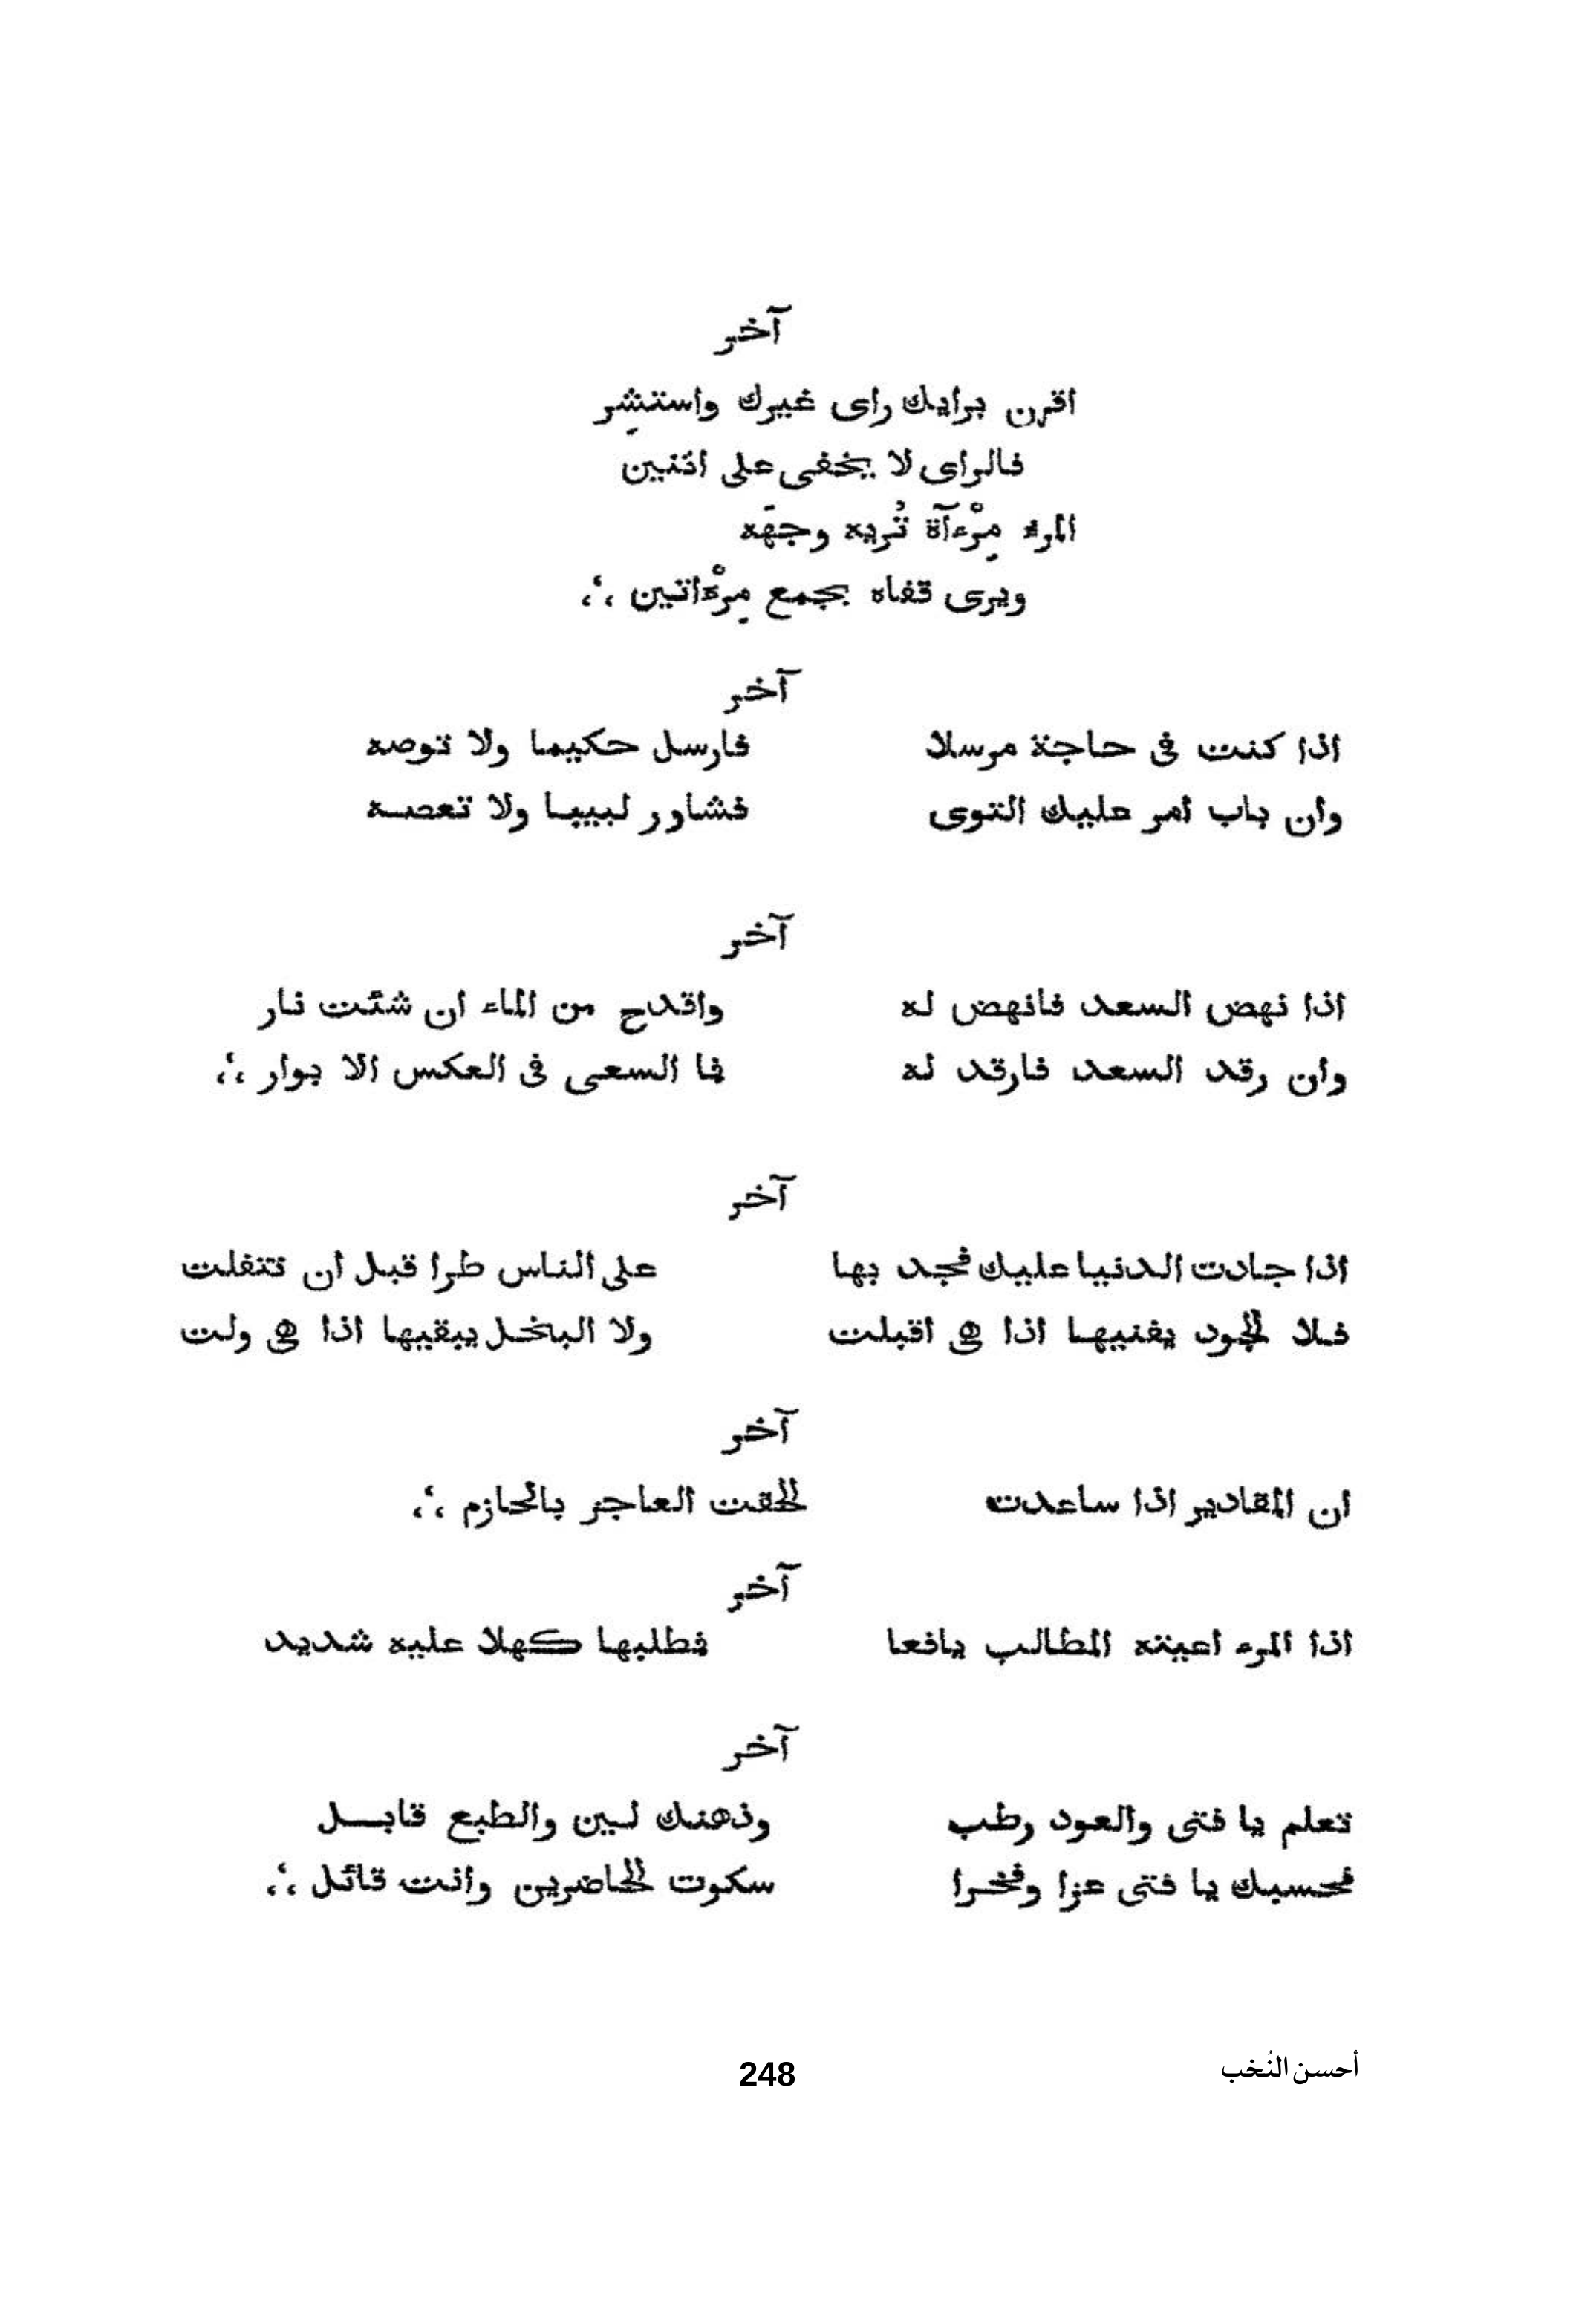 آخر
اقرن برايك راى غيرك واستشِر
فالراى لا يخفى على اثنين
المرء مِرْءآة تُريه وجهَه
ويرى قفاه بجمع مِرْءاتين ،‘،
آخر
اذا كنت فى حاجة مرسلا فارسل حكيما ولا توصه
وان باب امر عليك التوى فشاور لبيبا ولا تعصه
آخر
اذا نهض السعد فانهض له واقدح من الماء ان شئت نار
وان رقد السعد فارقد له فما السعى فى العكس الا بوار ،‘،
آخر
اذا جادت الدنيا عليك فجد بها على الناس طرا قبل ان تتفلت
فلا الجود يفنيها اذا هى اقبلت ولا البخل يبقيها اذا هى ولت
آخر
ان المقادير اذا ساعدت الحقت العاجز بالحازم ،‘،
آخر
اذا المرء اعيته المطالب يافعا فمطلبها كهلا عليه شديد
آخر
تعلم يا فتى والعود رطب وذهنك لين والطبع قابل
فحسبك يا فتى عزا وفخرا سكوت الحاضرين وانت قائل ،‘،
أحسن النُخب 248